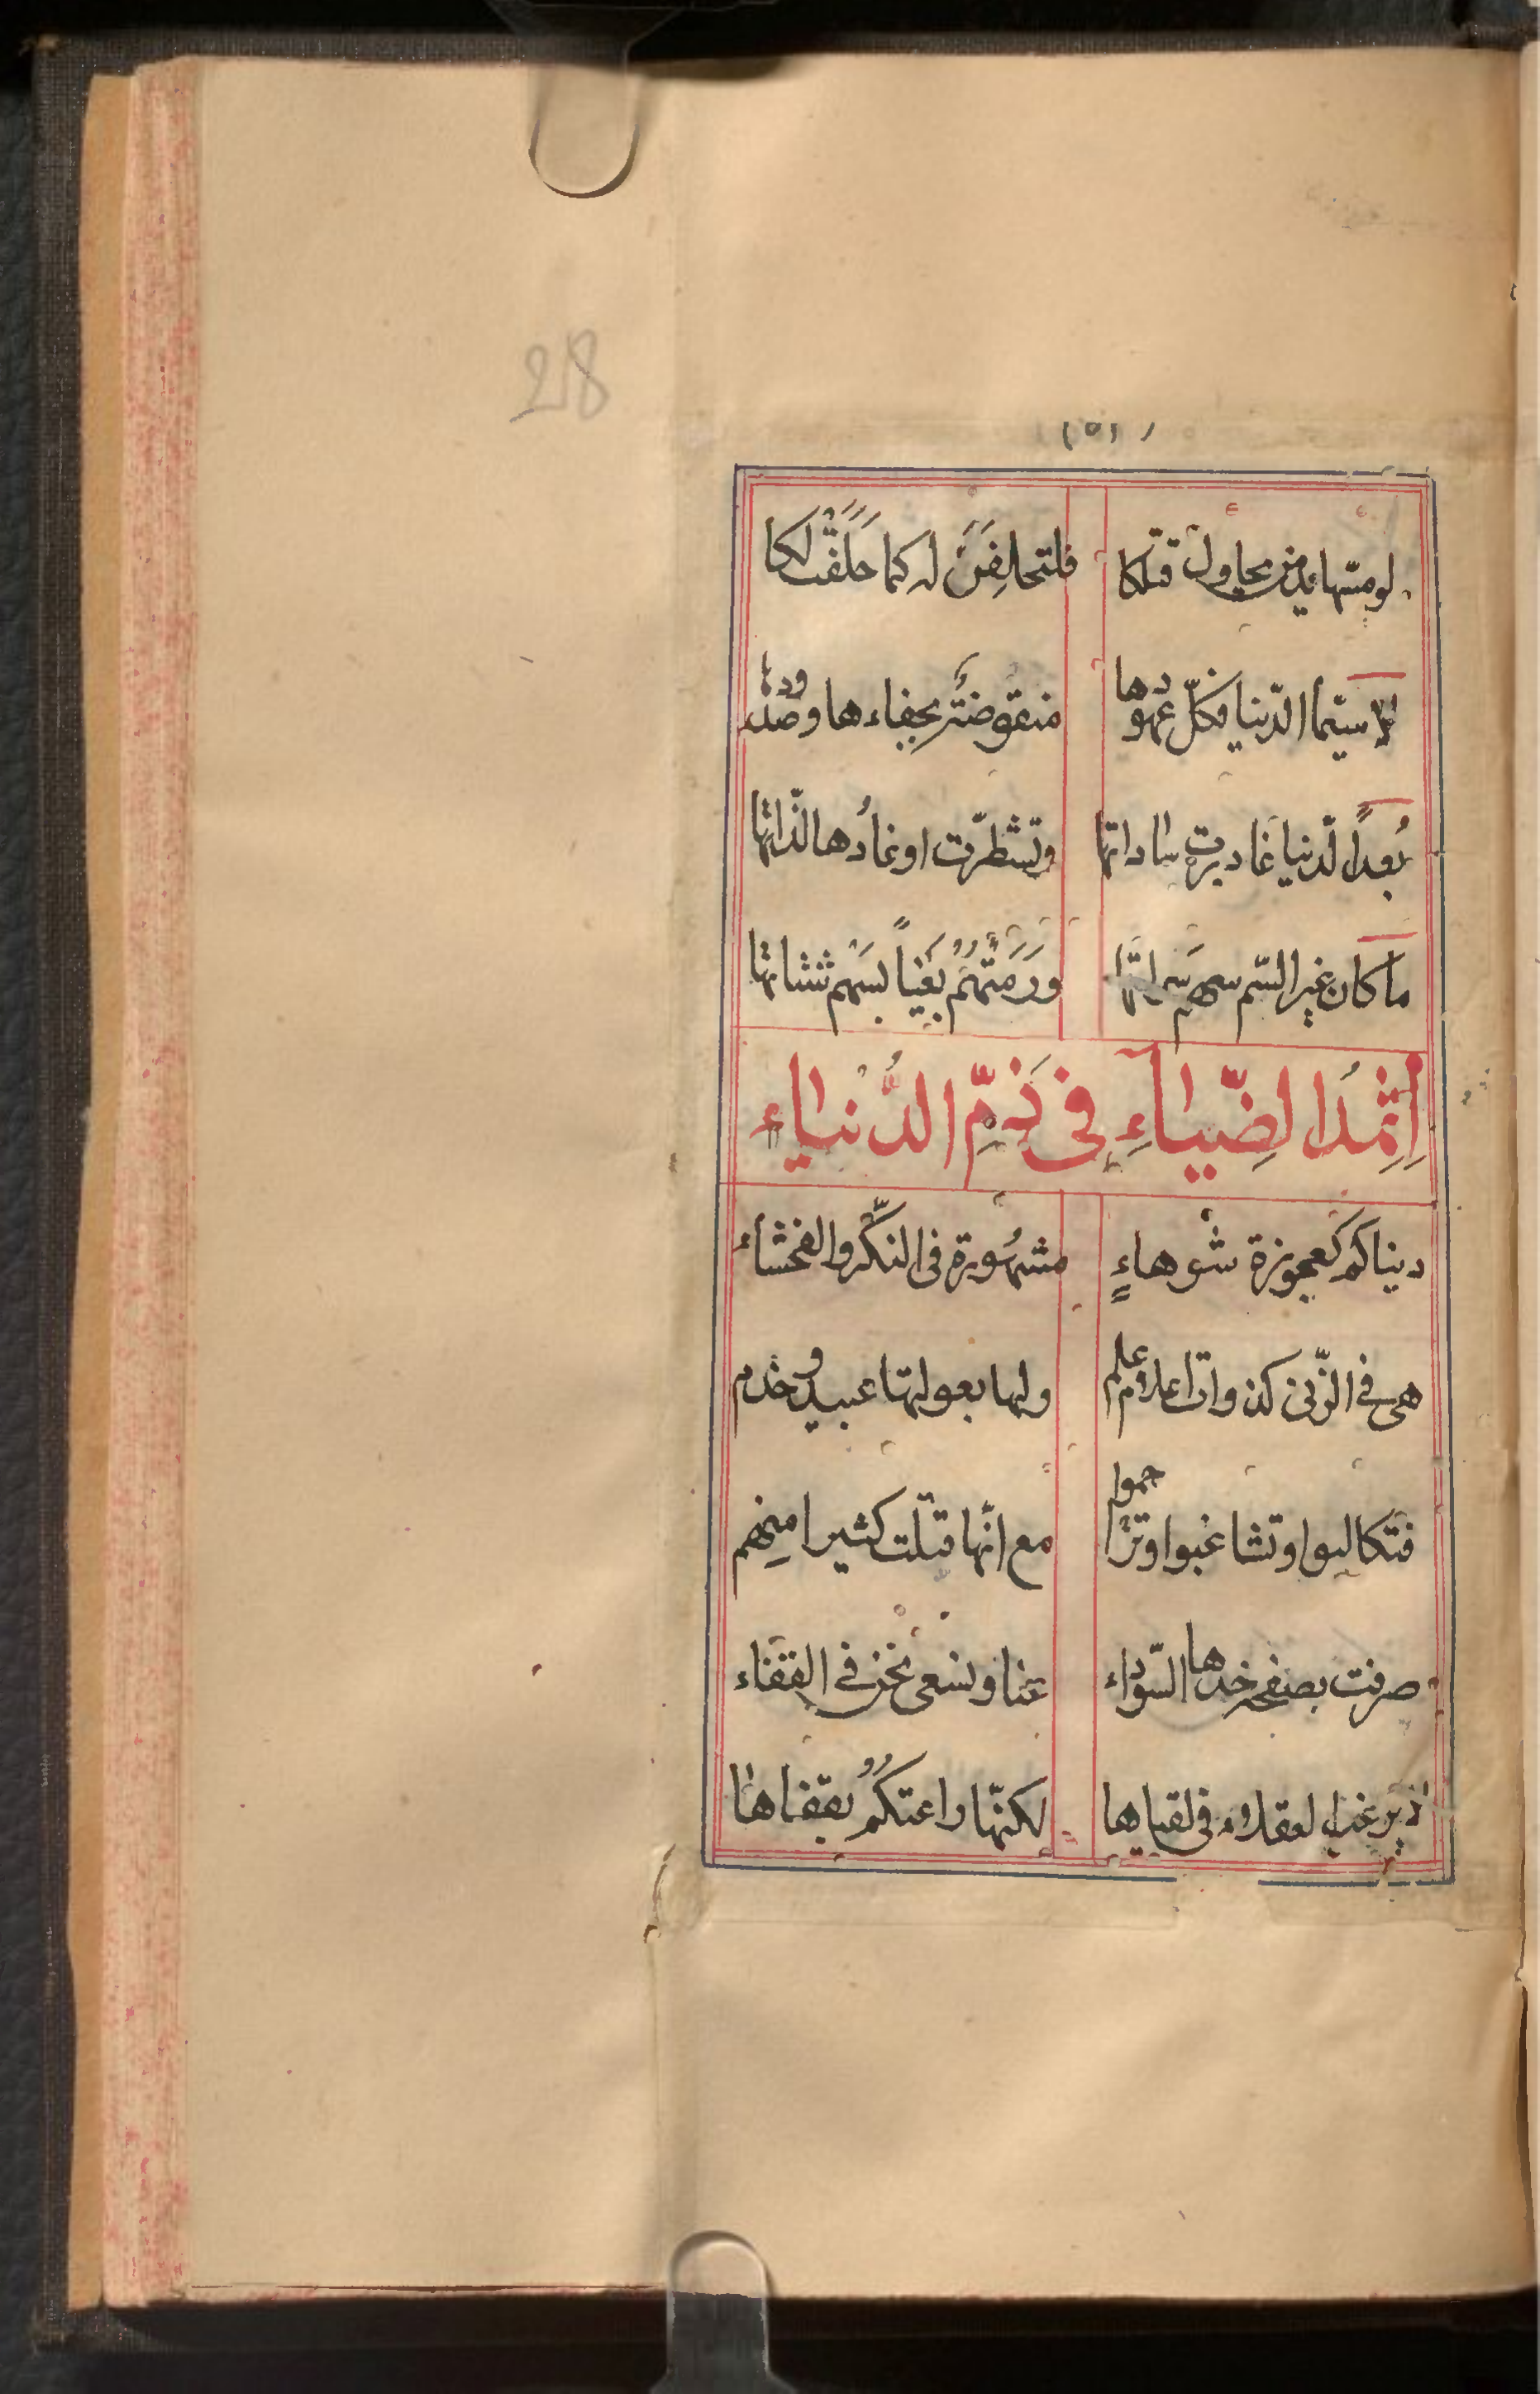 28
(٥١)
لو مسّها يد من يحاول قتلكا فلتحلفَنَّ له كما حَلَفَتْ لكا
لا سيّما الدّنيا فكلّ عهودها منقوضة بجفاءها وصدودها
بُعداً لدنيا غادرت ساداتها وتشطّرت اوغادُها لذّاتها
ما كان غير السّم سهم وَرَمَتْهُمُ بَغْياً بسَهم شتاتها
اِثْمُدُ الضِّيَاءِ فِى ذَمِّ الدُّنْيَاءِ
دنياكم كعجوزة شوهاءٍ مشهُورة فى النكّر والفحشاء
هى فى الزّنى كذوات اعلام علم ولها بعولتها عبيد وخدم
فتكالبوا وتشاغبوا وتزاحموا مع انّها قتلت كثيرا مِنهم
صرفت بصفح خدها السّوداء عنا ونسعى نحن فى القفاء
لعقلاء فى لقياها لكنّها راعتكُمُ بقفاها